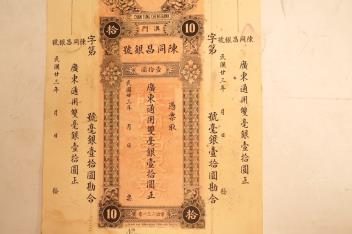 CHAN TUNG CHENG BANK
10
拾
門澳
號銀昌同陳
圓拾壹
憑票取
廣東通用雙毫銀壹拾圓正
民國廿三年 月 日
票
10
拾
陳同昌銀號
字第 號毫銀壹拾圓勘合
廣東通用雙毫銀壹拾圓正
民國廿三年 月 日
拾
陳同昌銀號
字第 號毫銀壹拾圓勘合
廣東通用雙毫銀壹拾圓正
民國廿三年 月 日